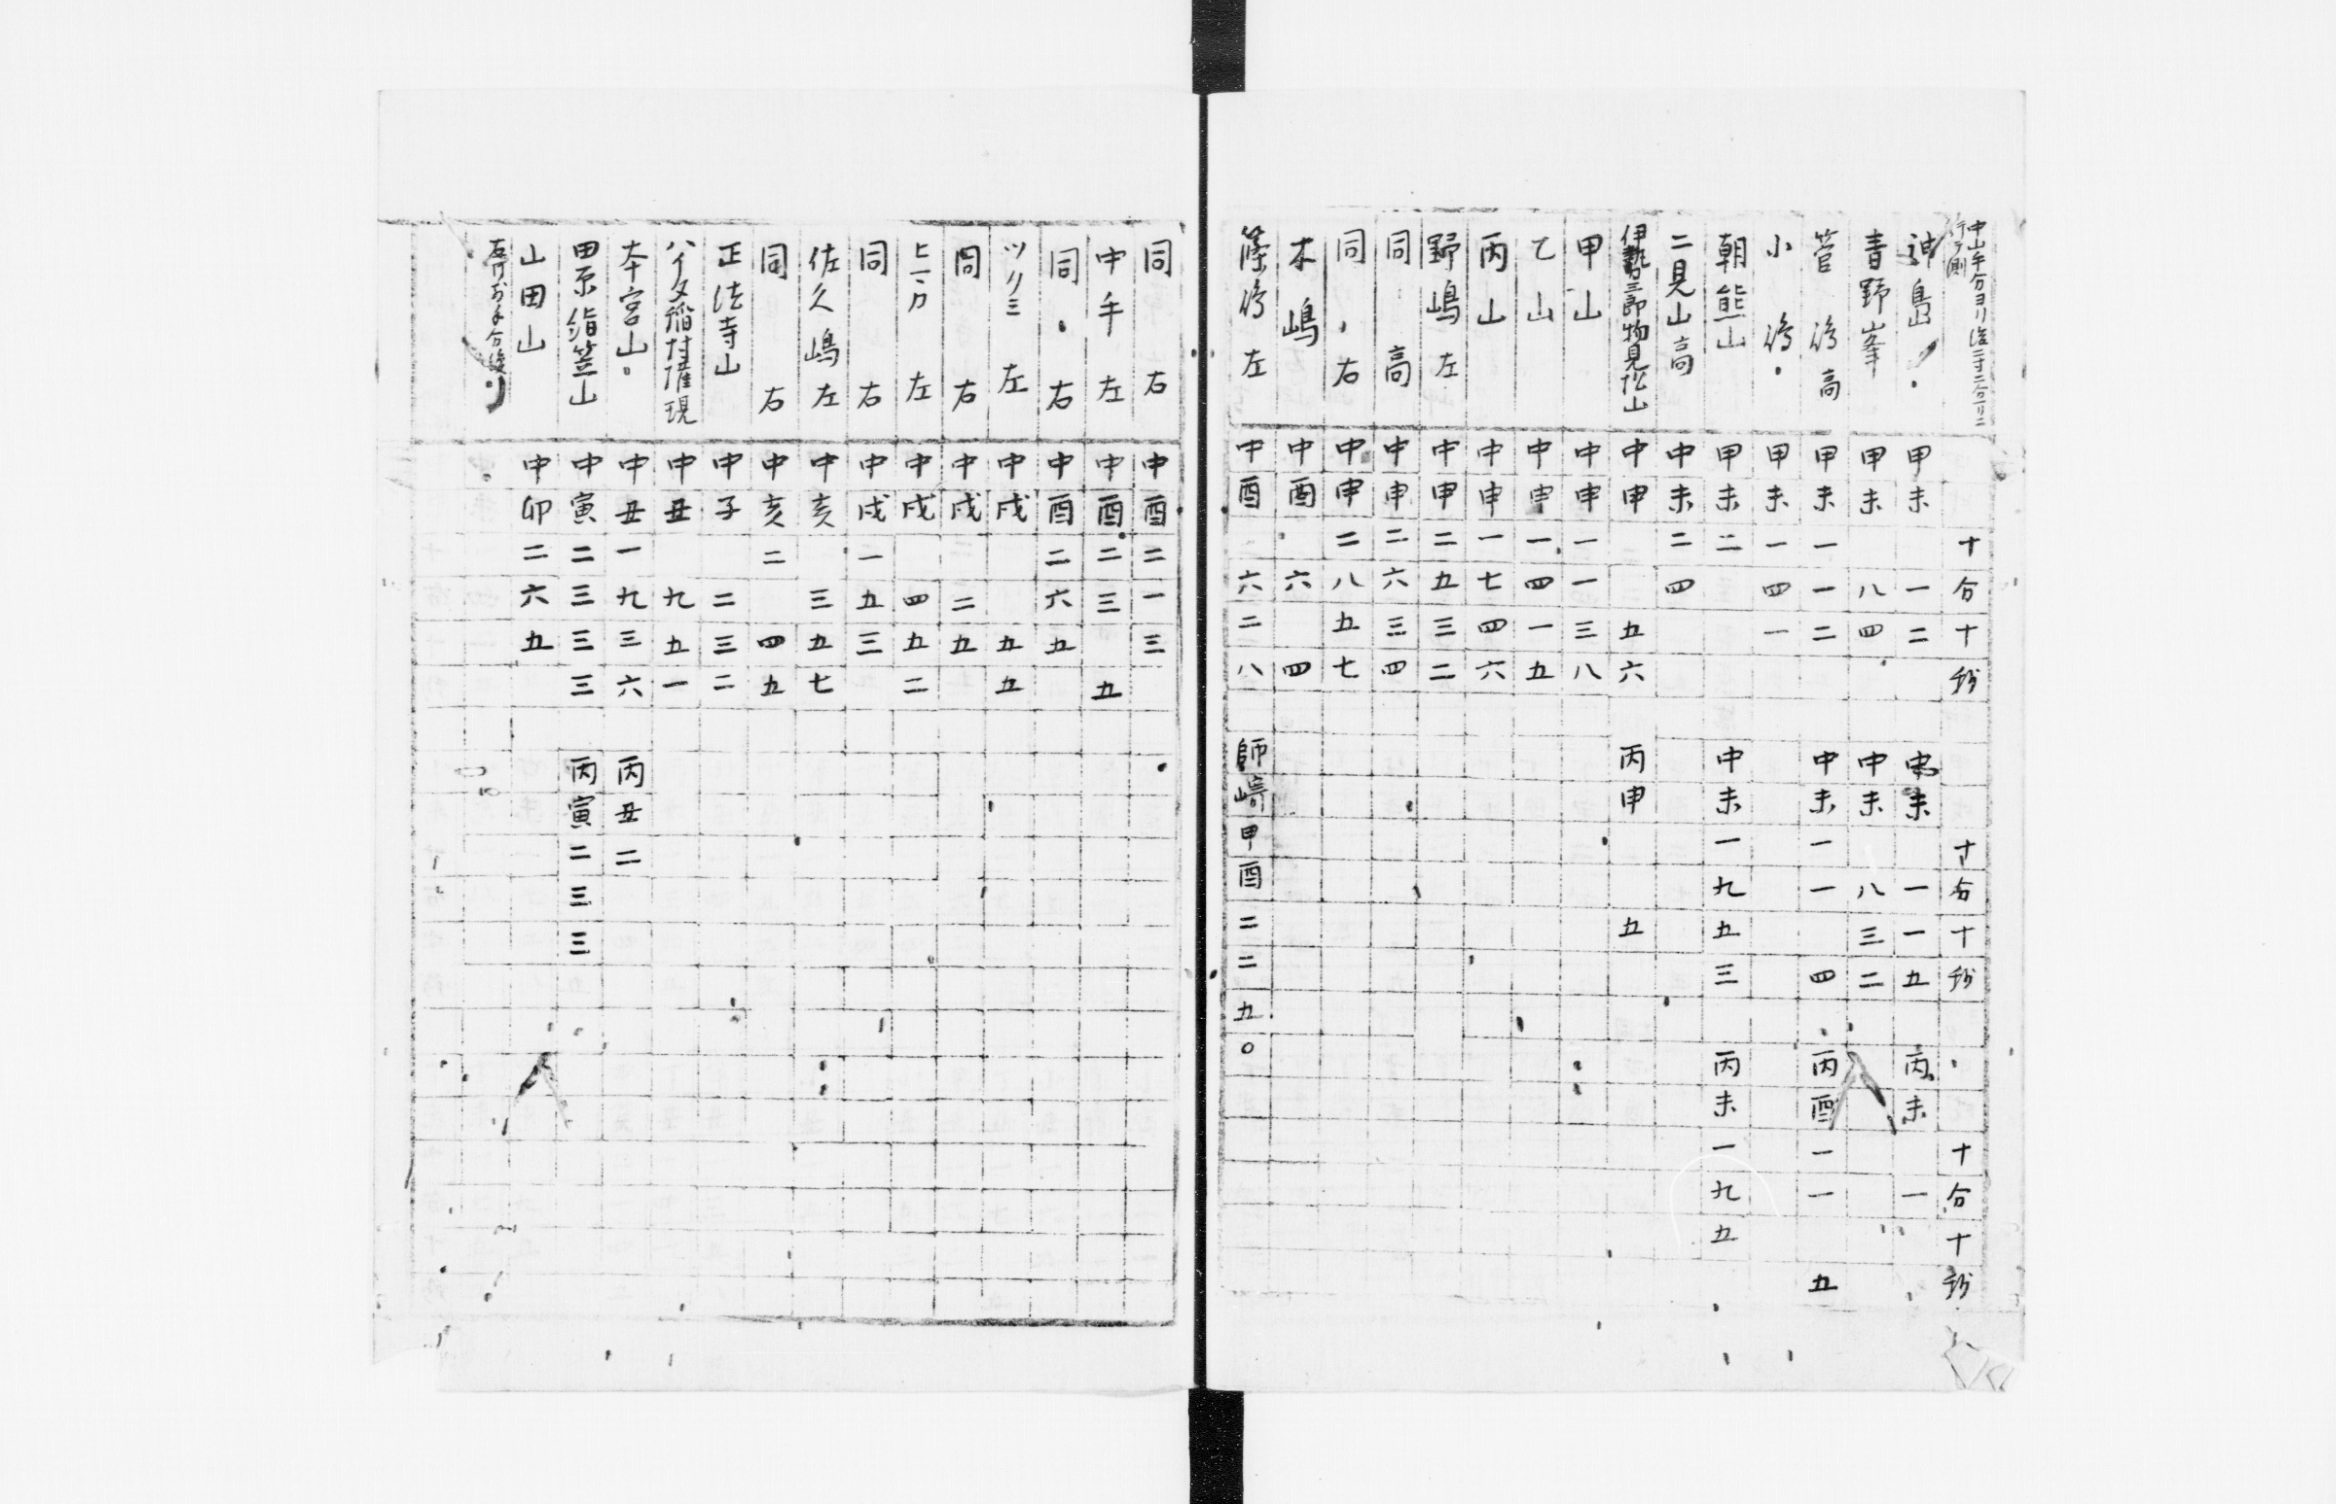 中山半合ヨリ
行ヲ測
十分十秒 十分十秒 十分十秒
神島 甲未 一二 中未 一一五 丙未 一
青野峯 甲未 八四 中未 八三二
管㠀高 甲未一一二 中未一一 四 丙酉一一 五
小㠀 甲未一四一
朝熊山 甲未二 中未一九五三 丙未一九五
二見山高 中未二四
伊勢三郎物見松山 中申 五六 丙申 五
甲山 中申一一三八
乙山 中申一四一五
丙山 中申一七四六
野嶋左 中申二五三二
同 高 中申二六三四
同 右 中申二八五七
木嶋 中酉 六 四
篠㠀左 中酉 六二八 師崎甲酉二二五〇
同 右 中酉二一三
中手左 中酉二三 五
同 右 中酉二六五
ツリミ 左 中戌 五五
同 右 中戌 二五
左 中戌 四五二
同 右 中戌一五三
佐久嶋左 中亥 三五七
同 右 中亥二 四五
正法寺山 中子 二三二
稲村 現 中丑 九五一
本宮山 中丑一九三六 丙丑二
田原 笠山 中寅二三三三 丙寅二三三
山田山 中卯二六五